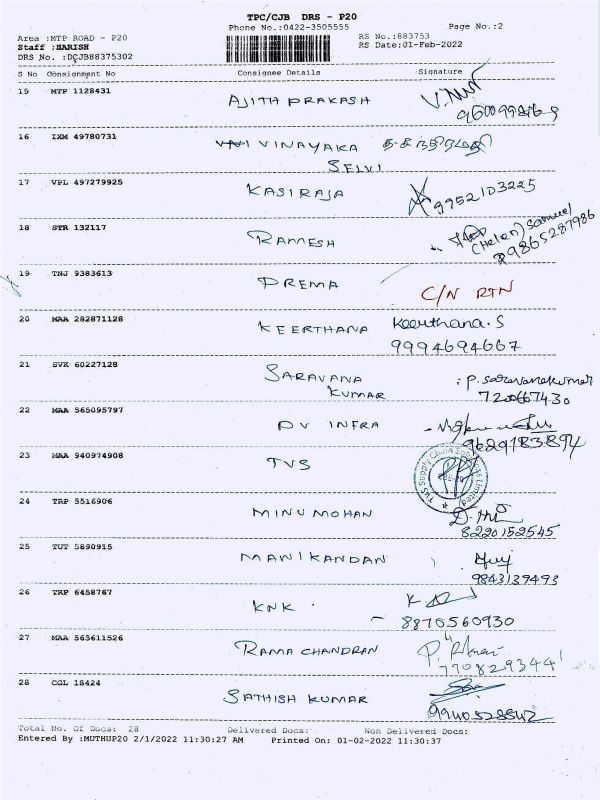 TPC/CJB DRS - P20
Phone No.:0422-3505555
Page No.:2
Area :MTP ROAD - P20
RS No.:883753
Staff :HARISH
RS Date:01-Feb-2022
DRS No. :DCJB88375302
S No Consignment No Consignee Details Signature
15 MTP 1128431 AJITH PRAKASH
16 IXM 49780731 VINAYAKA
SELVI
17 VPL 497279925 KASIRAJA 9952103225
18 STR 132117 RAMESH (Helen) Samuel
9865287986
19 TNJ 9383613 PREMA C/N RTN
20 MAA 282871128 KEERTHANA Keerthana.S
9994694667
21 SVK 60227128 SARAVANA P. Saravanakumar
KUMAR 720667430
22 MAA 565095797 DV INFRA
9629183894
23 MAA 940974908 TVS TVS Supply Chain Solutions Limited
24 TRP 5516906 MINU MOHAN
8220152545
25 TUT 5890915 MANIKANDAN
9843139493
26 TRP 6458767 KNK
8870560930
27 MAA 563611526 RAMA CHANDRAN
7708293441
28 CGL 18424 SATHISH KUMAR
9940528542
Total No. Of Docs: 28 Delivered Docs: Non Delivered Docs:
Entered By :MUTHUP20 2/1/2022 11:30:27 AM Printed On: 01-02-2022 11:30:37